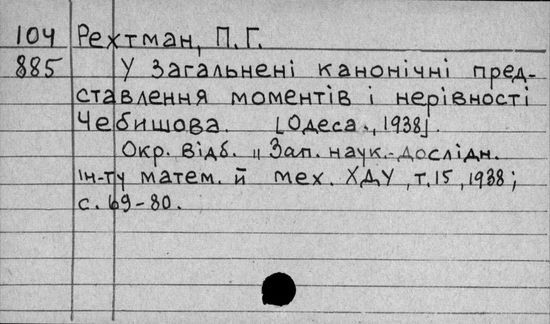 104 Рехтман, П.Г.
885 Узагальнені канонічні пред-
ставлення моментів і нерівності
Чебишова. [Одеса., 1938].
Окр. відб. „Зап. наук.-дослідн.
Ін-ту матем. й мех. ХДУ, т.15, 1938;
с. 69-80.